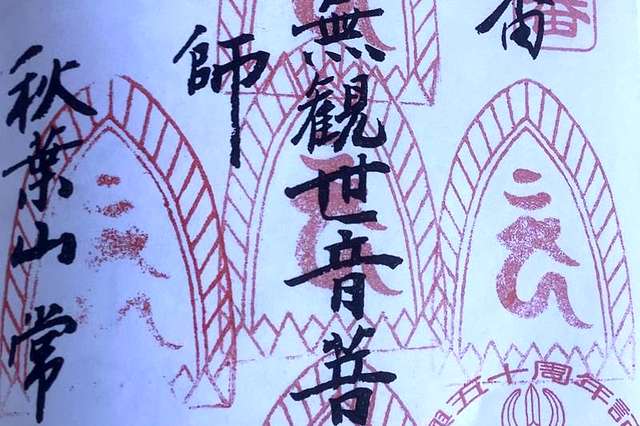 無観世音菩
師
秋葉山常
五十周年記